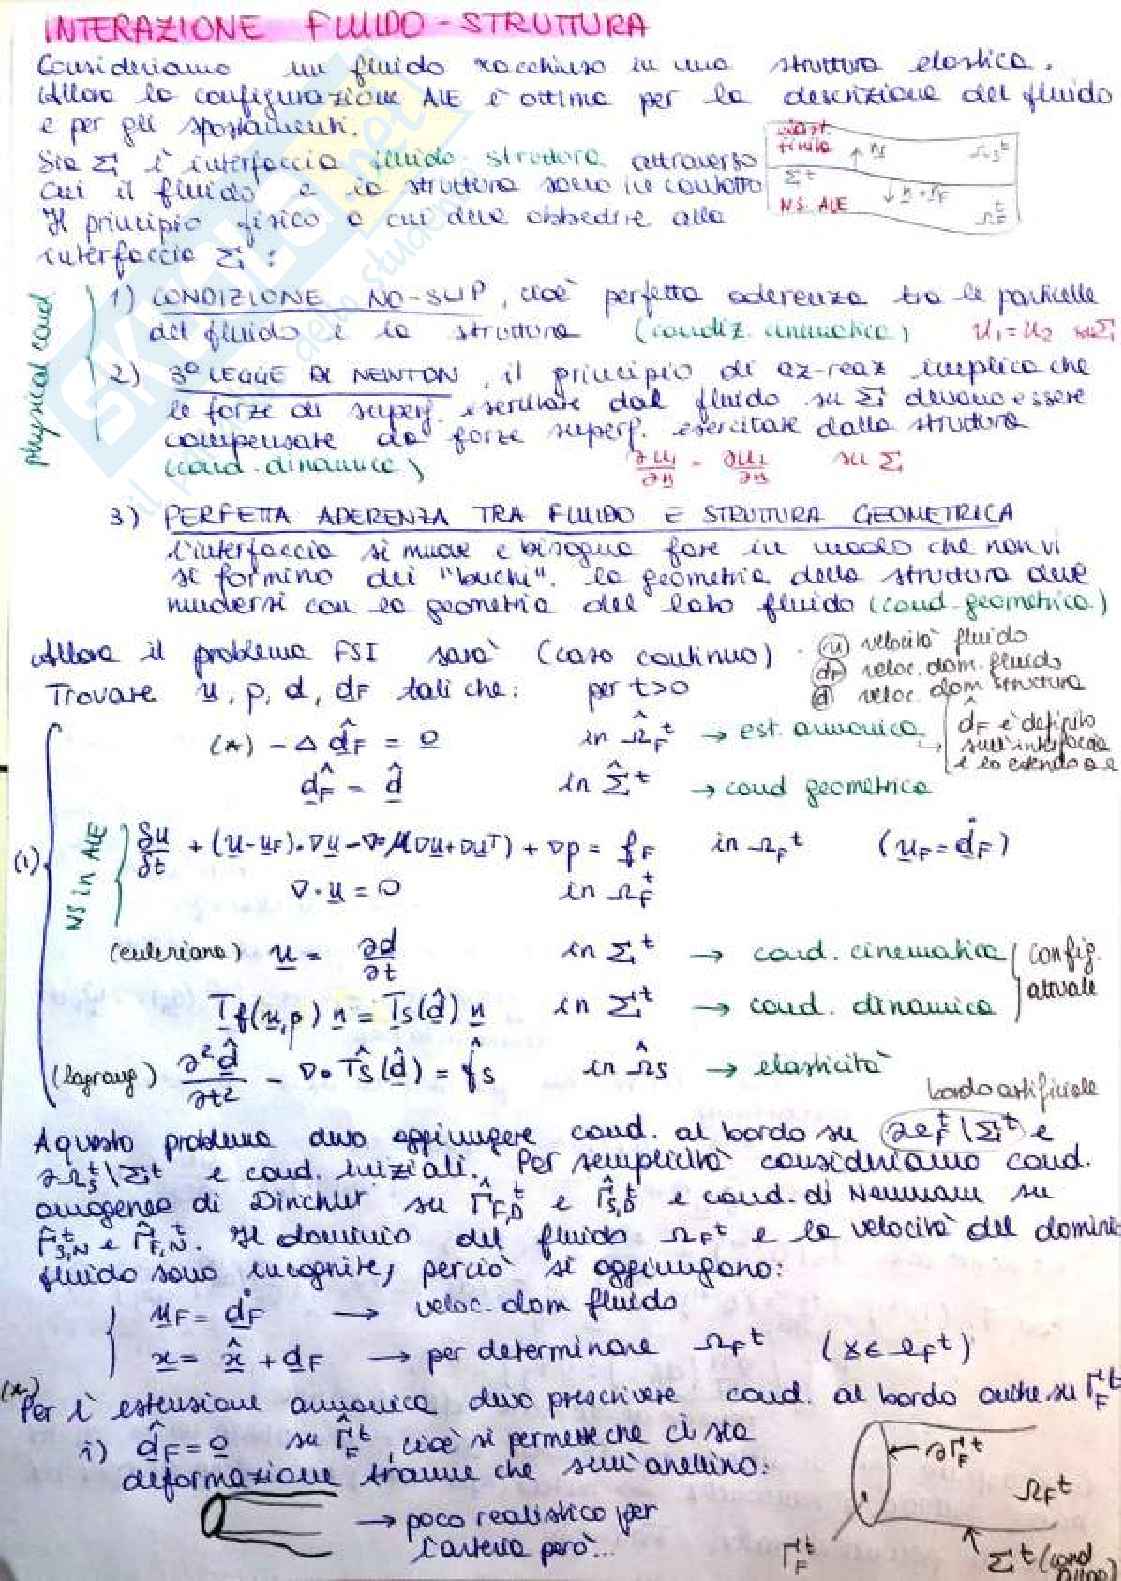 INTERAZIONE FLUIDO-STRUTTURA
Consideriamo un fluido racchiuso in una struttura elastica.
Allora la configurazione ALE è ottima per la descrizione del fluido
e per gli spostamenti.
Sia Σ l'interfaccia fluido-struttura attraverso
cui il fluido e la struttura sono in contatto
Il principio fisico a cui deve obbedire alla
interfaccia Σ:
elast.
finita
n_s
Ω_s^t
Σ^t
N.S. ALE
n = n_F
Ω_F^t
physical cond
1) CONDIZIONE NO-SLIP, cioè perfetta aderenza tra le particelle
del fluido e la struttura (condiz. cinematica) u₁=u₂ su Σ
2) 3° LEGGE DI NEWTON, il principio di az-reaz implica che
le forze di superf. esercitate dal fluido su Σ devono essere
compensate da forze superf. esercitate dalla struttura
(cond. dinamica) ∂u₁/∂n = ∂u₂/∂n su Σ
3) PERFETTA ADERENZA TRA FLUIDO E STRUTTURA GEOMETRICA
l'interfaccia si muove e bisogna fare in modo che non vi
si formino dei "buchi". La geometria della struttura deve
muoversi con la geometria del lato fluido (cond. geometrica)
Allora il problema FSI sarà (caso continuo).
Trovare u, p, d, d_F tali che: per t>0
(u) velocità fluido
(d_F) veloc. dom. fluido
(d) veloc. dom struttura
(*) -Δ d̂_F = 0 in Ω̂_F^t → est. armonica
d̂_F è definito
sull'interfaccia
e lo estendo a
d̂_F = d̂ in Σ̂^t → cond geometrica
(1)
NS in ALE
δu/δt + (u-u_F)·∇u - ∇·μ(∇u+∇u^T) + ∇p = f_F in Ω_F^t (u_F = ḋ_F)
∇·u = 0 in Ω_F^t
(euleriana) u = ∂d/∂t in Σ^t → cond. cinematica
config.
attuale
T_f(u,p) n = T_s(d̂) n in Σ^t → cond. dinamica
(lagrang) ∂²d̂/∂t² - ∇·T̂_s(d̂) = f̂_s in Ω̂_s → elasticità
bordo artificiale
A questo problema devo aggiungere cond. al bordo su ∂Ω_F^t \ Σ^t e
∂Ω_s^t \ Σ^t e cond. iniziali. Per semplicità consideriamo cond.
omogenee di Dirichlet su Γ̂_{F,D}^t e Γ̂_{S,D}^t e cond. di Neumann su
Γ̂_{S,N}^t e Γ̂_{F,N}^t. Il dominio del fluido Ω_F^t e la velocità del dominio
fluido sono incognite, perciò si aggiungono:
u_F = ḋ_F → veloc. dom fluido
x = x̂ + d_F → per determinare Ω_F^t (x ∈ Ω_F^t)
(*)
Per l'estensione armonica devo prescrivere cond. al bordo anche su Γ_F^t
i) d̂_F = 0 su Γ̂_F^t, cioè si permette che ci sia
deformazione tranne che sull'anellino:
→ poco realistico per
l'arteria però...
∂Γ_F^t
Ω_F^t
Γ_F^t
Σ^t (cond
SKUOLA.net
il paradiso dello studente